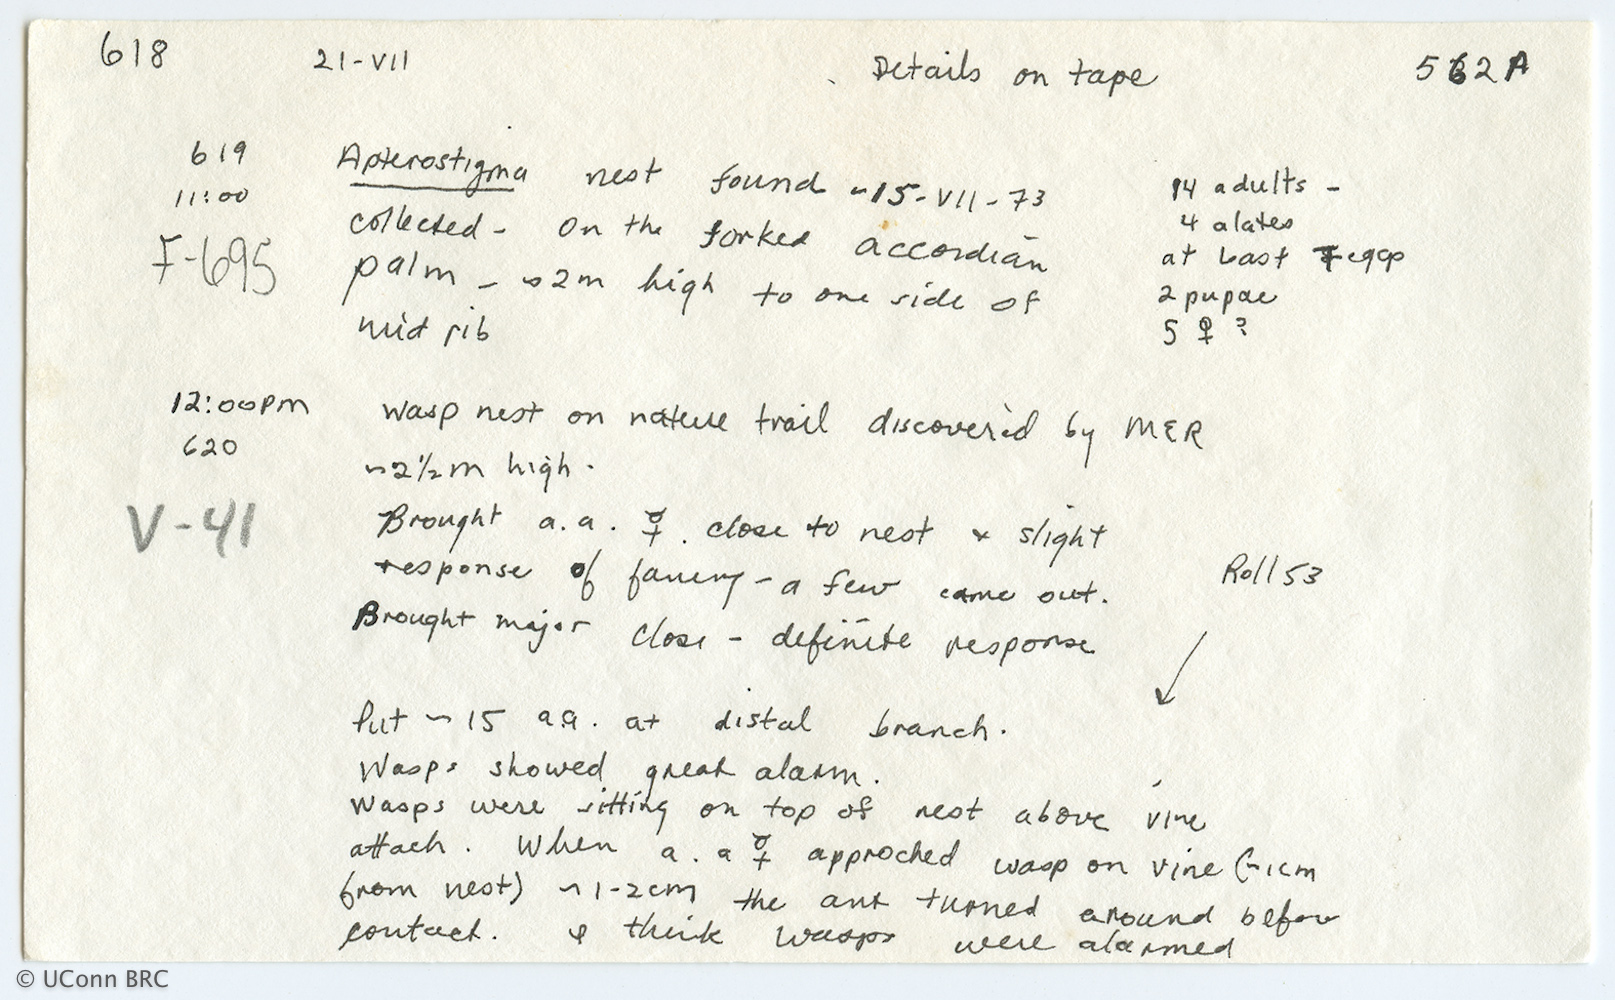 618 21-VII Details on tape 562A
619 Apterostigma nest found ~15-VII-73 14 adults -
11:00 collected - On the forked accordian 4 alates
F-695 palm - ~2m high to one side of at least 7 eggs
mid rib 2 pupae
5 ♀ ?
12:00pm wasp nest on nature trail discovered by MER
620 ~2½m high.
V-41 Brought a.a. ☿. close to nest & slight
response of fanning - a few came out. Roll 53
Brought major close - definite response
Put ~ 15 a.a. at distal branch.
Wasps showed great alarm.
Wasps were sitting on top of nest above vine
attach. When a.a ☿ approched wasp on vine (~1cm
from nest) ~1-2cm the ant turned around before
contact. I think wasps were alarmed
© UConn BRC